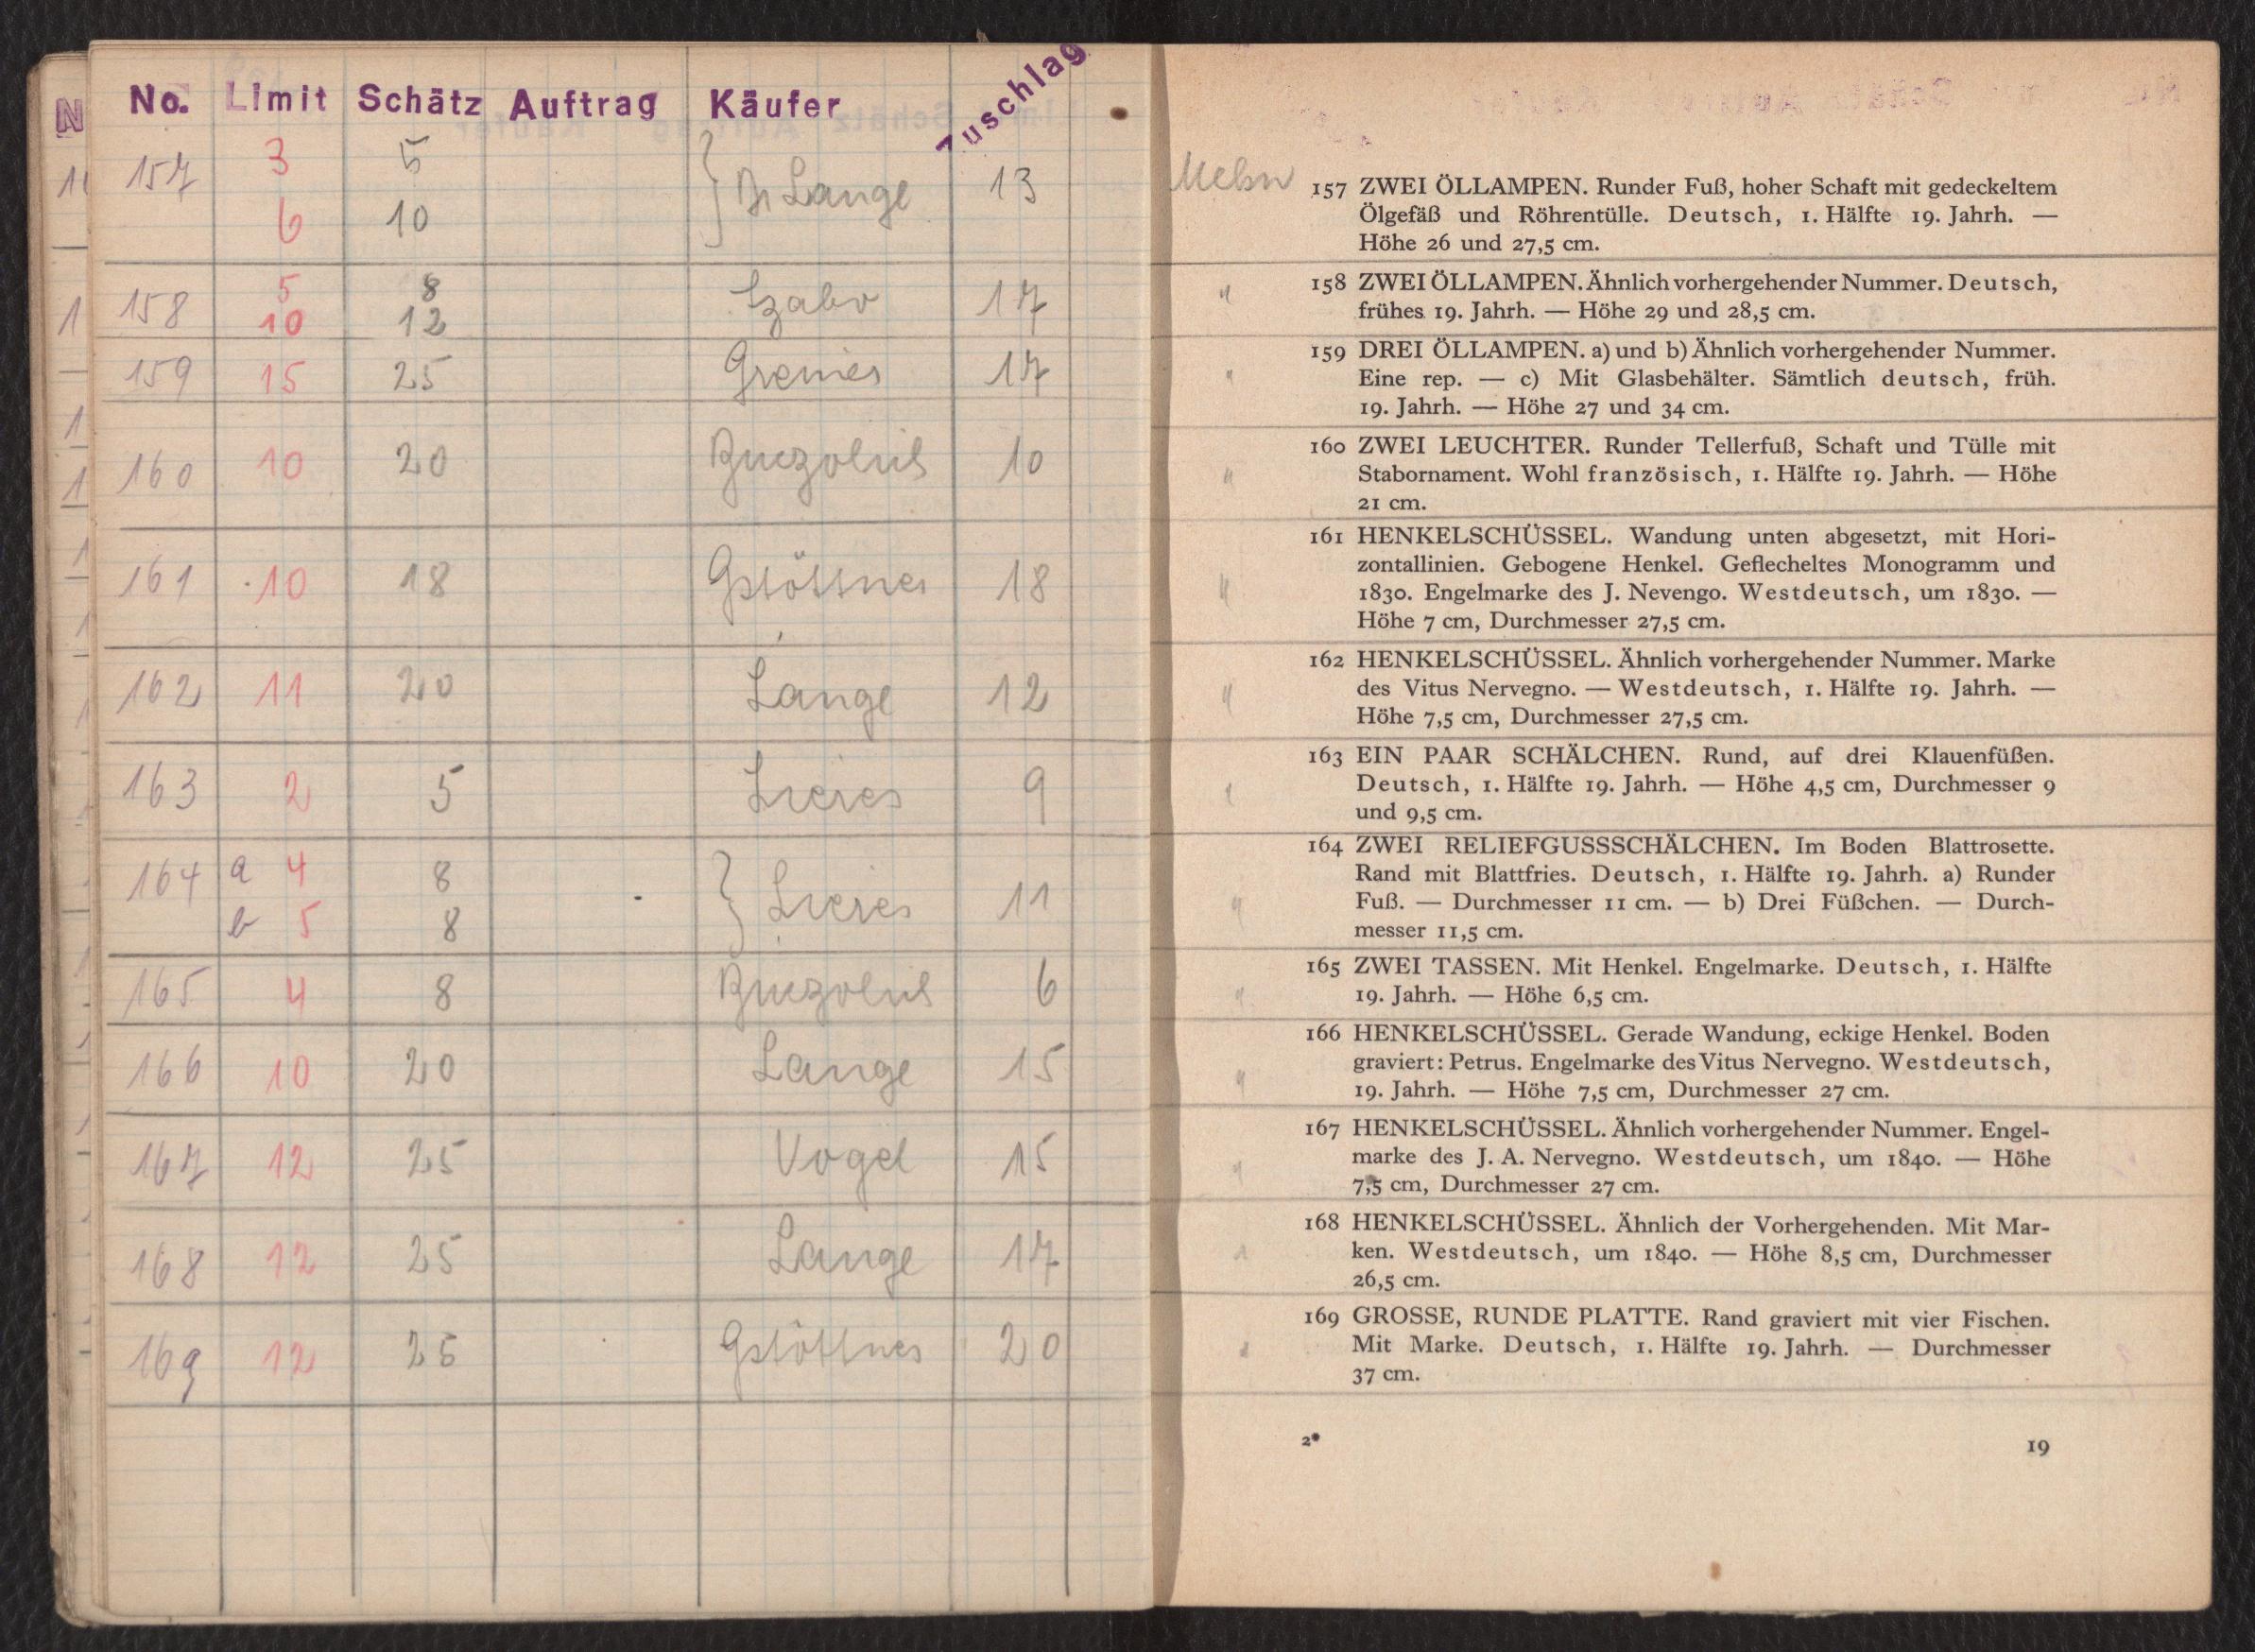 No. Limit Schätz Auftrag Käufer Zuschlag
157 3 5 } Dr Lange 13
6 10
158 5 8 Szabo 17
10 12
159 15 25 Greiner 17
160 10 20 10
161 10 18 Gstöttner 18
162 11 20 Lange 12
163 2 5 Lieres 9
164 a 4 8 } Lieres 11
b 5 8
165 4 8 6
166 10 20 Lange 15
167 12 25 Vogel 15
168 12 25 Lange 17
169 12 25 Gstöttner 20
157 ZWEI ÖLLAMPEN. Runder Fuß, hoher Schaft mit gedeckeltem
Ölgefäß und Röhrentülle. Deutsch, 1. Hälfte 19. Jahrh. —
Höhe 26 und 27,5 cm.
" 158 ZWEI ÖLLAMPEN. Ähnlich vorhergehender Nummer. Deutsch,
frühes 19. Jahrh. — Höhe 29 und 28,5 cm.
159 DREI ÖLLAMPEN. a) und b) Ähnlich vorhergehender Nummer.
" Eine rep. — c) Mit Glasbehälter. Sämtlich deutsch, früh.
19. Jahrh. — Höhe 27 und 34 cm.
160 ZWEI LEUCHTER. Runder Tellerfuß, Schaft und Tülle mit
" Stabornament. Wohl französisch, 1. Hälfte 19. Jahrh. — Höhe
21 cm.
161 HENKELSCHÜSSEL. Wandung unten abgesetzt, mit Hori-
zontallinien. Gebogene Henkel. Geflecheltes Monogramm und
" 1830. Engelmarke des J. Nevengo. Westdeutsch, um 1830. —
Höhe 7 cm, Durchmesser 27,5 cm.
162 HENKELSCHÜSSEL. Ähnlich vorhergehender Nummer. Marke
" des Vitus Nervegno. — Westdeutsch, 1. Hälfte 19. Jahrh. —
Höhe 7,5 cm, Durchmesser 27,5 cm.
163 EIN PAAR SCHÄLCHEN. Rund, auf drei Klauenfüßen.
" Deutsch, 1. Hälfte 19. Jahrh. — Höhe 4,5 cm, Durchmesser 9
und 9,5 cm.
164 ZWEI RELIEFGUSSSCHÄLCHEN. Im Boden Blattrosette.
Rand mit Blattfries. Deutsch, 1. Hälfte 19. Jahrh. a) Runder
" Fuß. — Durchmesser 11 cm. — b) Drei Füßchen. — Durch-
messer 11,5 cm.
165 ZWEI TASSEN. Mit Henkel. Engelmarke. Deutsch, 1. Hälfte
" 19. Jahrh. — Höhe 6,5 cm.
166 HENKELSCHÜSSEL. Gerade Wandung, eckige Henkel. Boden
graviert: Petrus. Engelmarke des Vitus Nervegno. Westdeutsch,
" 19. Jahrh. — Höhe 7,5 cm, Durchmesser 27 cm.
167 HENKELSCHÜSSEL. Ähnlich vorhergehender Nummer. Engel-
" marke des J. A. Nervegno. Westdeutsch, um 1840. — Höhe
7,5 cm, Durchmesser 27 cm.
168 HENKELSCHÜSSEL. Ähnlich der Vorhergehenden. Mit Mar-
" ken. Westdeutsch, um 1840. — Höhe 8,5 cm, Durchmesser
26,5 cm.
169 GROSSE, RUNDE PLATTE. Rand graviert mit vier Fischen.
" Mit Marke. Deutsch, 1. Hälfte 19. Jahrh. — Durchmesser
37 cm.
2* 19